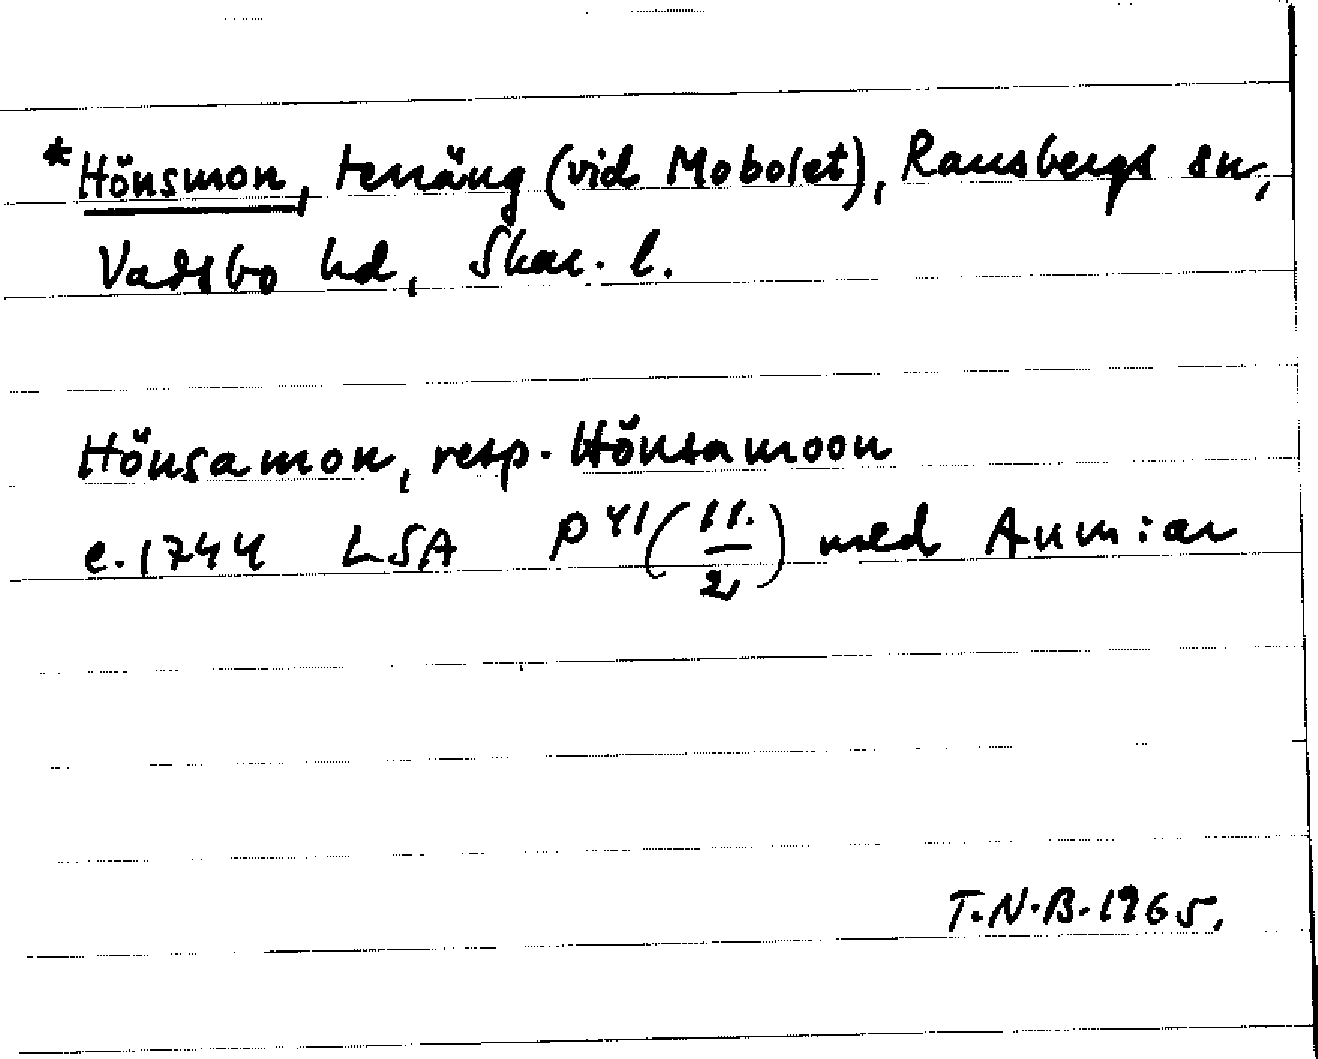 *Hönsmon, terräng (vid Mobolet), Ransbergs sn,
Vadsbo hd, Skar. l.
Hönsamon, resp. Hönsamoon
c. 1744 LSA P41 (11./2) med Anm:ar
T.N.B. 1965.